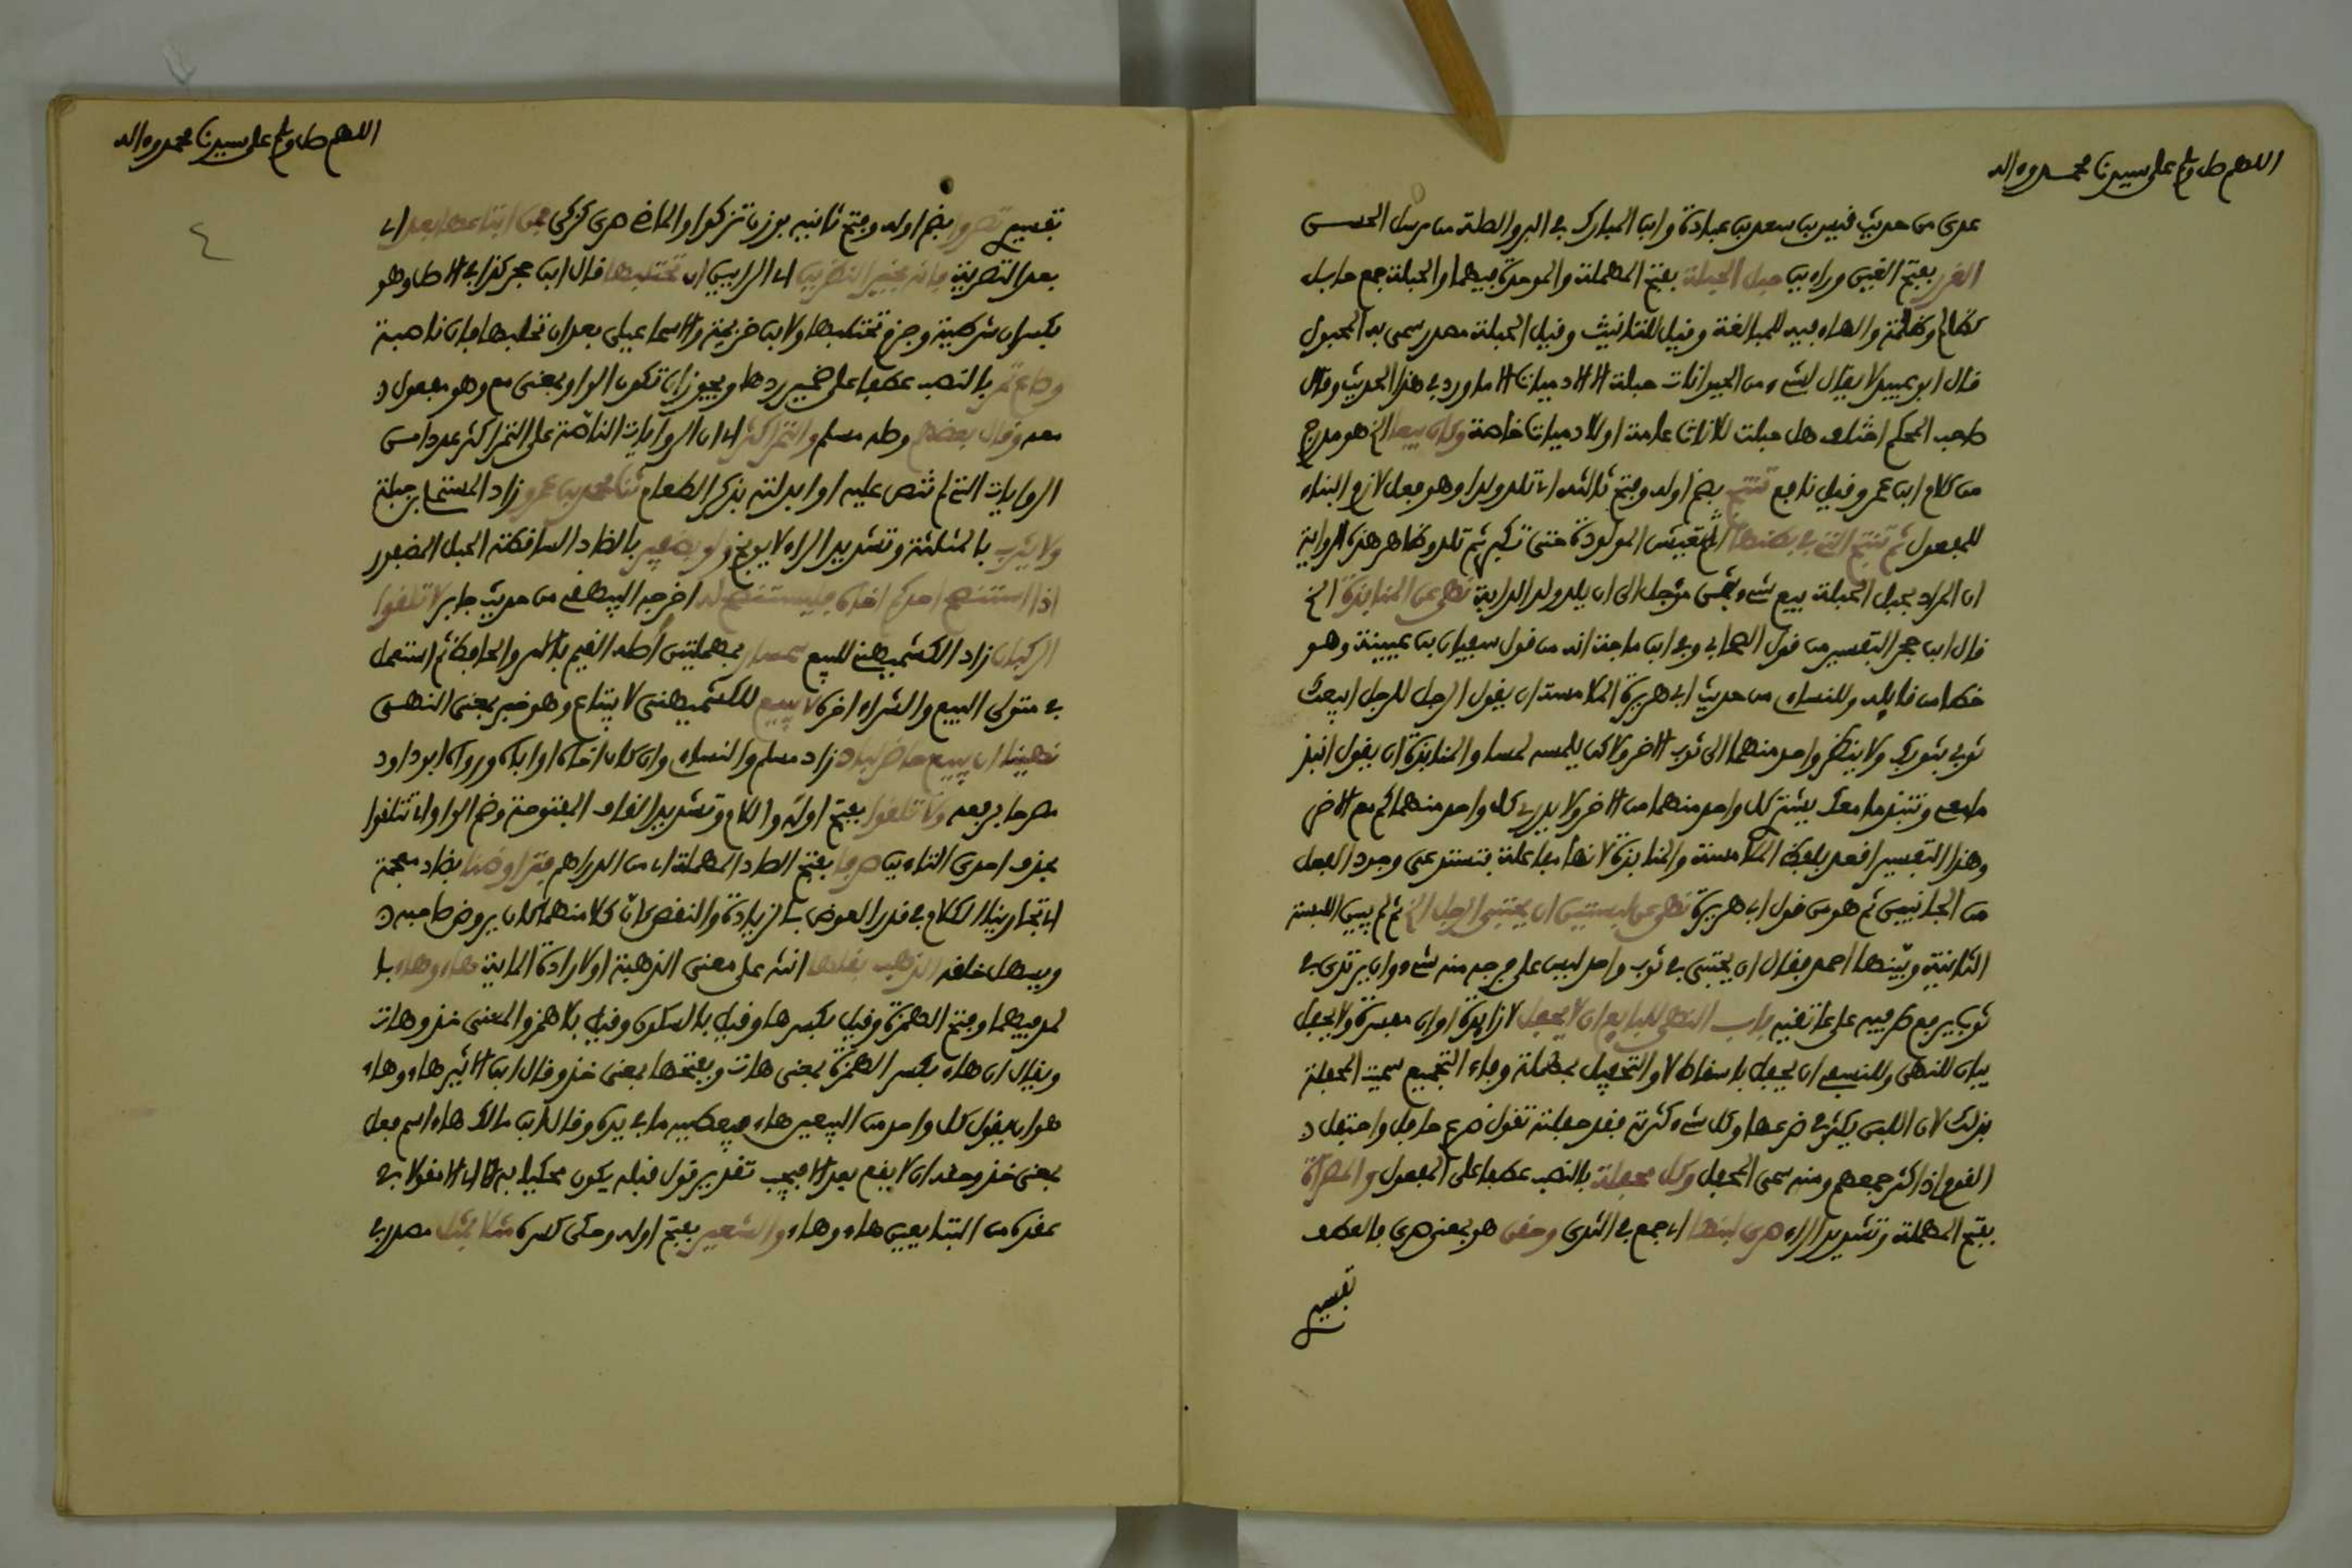 اللهم صل وسلم على سيدنا محمد وءاله
عدى من حديث قيس بن سعد بن عبادة وابن المبارك في البر والصلة من مرسل الحسن
الغرر بفتح الغين وراءين حبل الحبلة بفتح المهملة والموحدة فيهما والحبلة جمع حابل
كظالم وظلمة والهاء فيه للمبالغة وقيل للتانيث وقيل الحبلة مصدر سمي به المحبول
قال ابو عبيد لا يقال لشيء من الحيوانات حبلة الا الادميات الا ما ورد في هذا الحديث وقال
صاحب المحكم اختلف هل حبلت للاناث عامة او للادميات خاصة وكان بيعا الخ هو مدرج
من كلام ابن عمر وقيل نافع تنتج بضم اوله وفتح ثالثه اي تلد ولدا وهو فعل لازم البناء
للمفعول ثم تنتج التي في بطنها ثم تعيش المولودة حتى تكبر ثم تلد وظاهر هذه الرواية
ان المراد بحبل الحبلة بيع شيء بثمن مؤجل الى ان يلد ولد الدابة نهى عن المنابذة الخ
قال ابن حجر التفسير من قول الصحابي وفي ابن ماجة انه من قول سفيان بن عيينة وهو
خطا من قايله وللنساءي من حديث ابي هريرة الملامسة ان يقول الرجل للرجل ابيعك
ثوبي بثوبك ولا ينظر واحد منهما الى ثوب الاخر ولاكن يلمسه لمسا والمنابذة ان يقول انبذ
ما معي وتنبذ ما معك يشتري كل واحد منهما من الاخر ولا يدري كل واحد منهما كم مع الاخر
وهذا التفسير اقعد بلفظ الملامسة والمنابذة لانها مفاعلة فتستدعى وجود الفعل
من الجانبين ثم هو من قول ابي هريرة نهى عن لبستين ان يحتبي الرجل الخ ثم لم يبين اللبسة
الثانية وبينها احمد فقال ان يحتبى في ثوب واحد ليس على فرجه منه شيء وان يرتدى في
ثوب يرفع طرفيه على عاتقيه باب النهى للبايع ان لا يحفل لا زايدة او ان مفسرة ولا يحفل
بيان للنهى وللنسفي ان يحفل باسقاط لا والتحفيل بمهملة وفاء التجميع سميت المحفلة
بذلك لان اللبن يكثر في ضرعها وكل شيء كثرته فقد حفلته تقول ضرع حافل واحتفل
القوم اذا كثر جمعهم ومنه سمى المحفل وكل محفلة بالنصب عطفا على المفعول والمصراة
بفتح المهملة وتشديد الراء صرى لبنها اي جمع في الثدى وحقن هو بمعنى صرى فالعطف
تفسير
اللهم صل وسلم على سيدنا محمد وءاله
٤
تفسير تصروا بضم اوله وفتح ثانيه بوزن تزكوا والماضي صرى كزكى فمن ابتاعها بعد اي
بعد التصرية فانه بخير النظرين اي الرايين ان تحتلبها قال ابن حجر كذا في الاصل وهو
بكسر ان شرطية وجزم تحتلبها ولابن خزيمة والاسماعيلي بعد ان تحلبها فان ناصبة
وصاع تمر بالنصب عطفا على ضمير ردها ويجوز ان تكون الواو بمعنى مع وهو مفعول
معه وقال بعضهم وصله مسلم والتمر اكثر اي ان الروايات الناصة على التمر اكثر عددا من
الروايات التي لم تنص عليه او ابدلته بذكر الطعام ثنا محمد بن عمرو زاد المستملى بن جبلة
ولا يثرب بالمثلثة وتشديد الراء لا يوبخ ولو بضفير بالضاد الساقطة الحبل المضفور
اذا استنصح احدكم اخاه فلينصح له اخرجه البيهقي من حديث جابر لا تلقوا
الركبان زاد الكشميهني للبيع سمسارا بمهملتين اصله القيم بالامر والحافظ ثم استعمل
في متولى البيع والشراء اخره لا يبيع للكشميهنى لا يبتاع وهو خبر بمعنى النهى
نهينا ان يبيع حاضر لباد زاد مسلم والنساءي وان كان اخاه او اباه ورواه ابو داود
مصرحا برفعه ولا تلقوا بفتح اوله واللام وتشديد القاف المفتوحة وضم الواو اي تتلقوا
بحذف احدى التاءين صرفا بفتح الصاد المهملة اي من الدراهم فتراوضنا بضاد معجمة
اي تجارينا الكلام في قدر العوض بالزيادة والنقص كان كلا منهما كان يروض صاحبه
ويسهل خلقه الذهب يقلبها انثه على معنى الذهبة او لارادة الماية هاء وهاء با
لمد فيهما وفتح الهمزة وقيل بكسرها وقيل بالسكون وقيل بلا همز والمعنى خذ وهات
ويقال ان هاء بكسر الهمزة بمعنى هات وبفتحها بمعنى خذ وقال ابن الاثير هاء وهاء
هو ان يقول كل واحد من البيعين هاء فيعطيه ما في يده وقال ابن مالك هاء اسم فعل
بمعنى خذ وحقه ان لا يقع بعد الا فيجب تقدير قول قبله يكون محكيا به اي الا مقولا في
عقده من المتبايعين هاء وهاء والشعير بفتح اوله وحكى كسره مثلا بمثل مصدر في